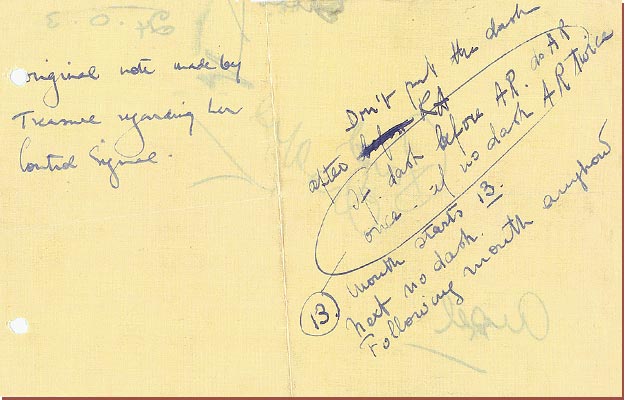 original note made by
Treasure regarding her
Control Signal.
Don't put the dash
after KA
If dash before AR. do AR
once. if no dash AR twice
Month starts 13.
Next no dash.
Following month anyhow
13